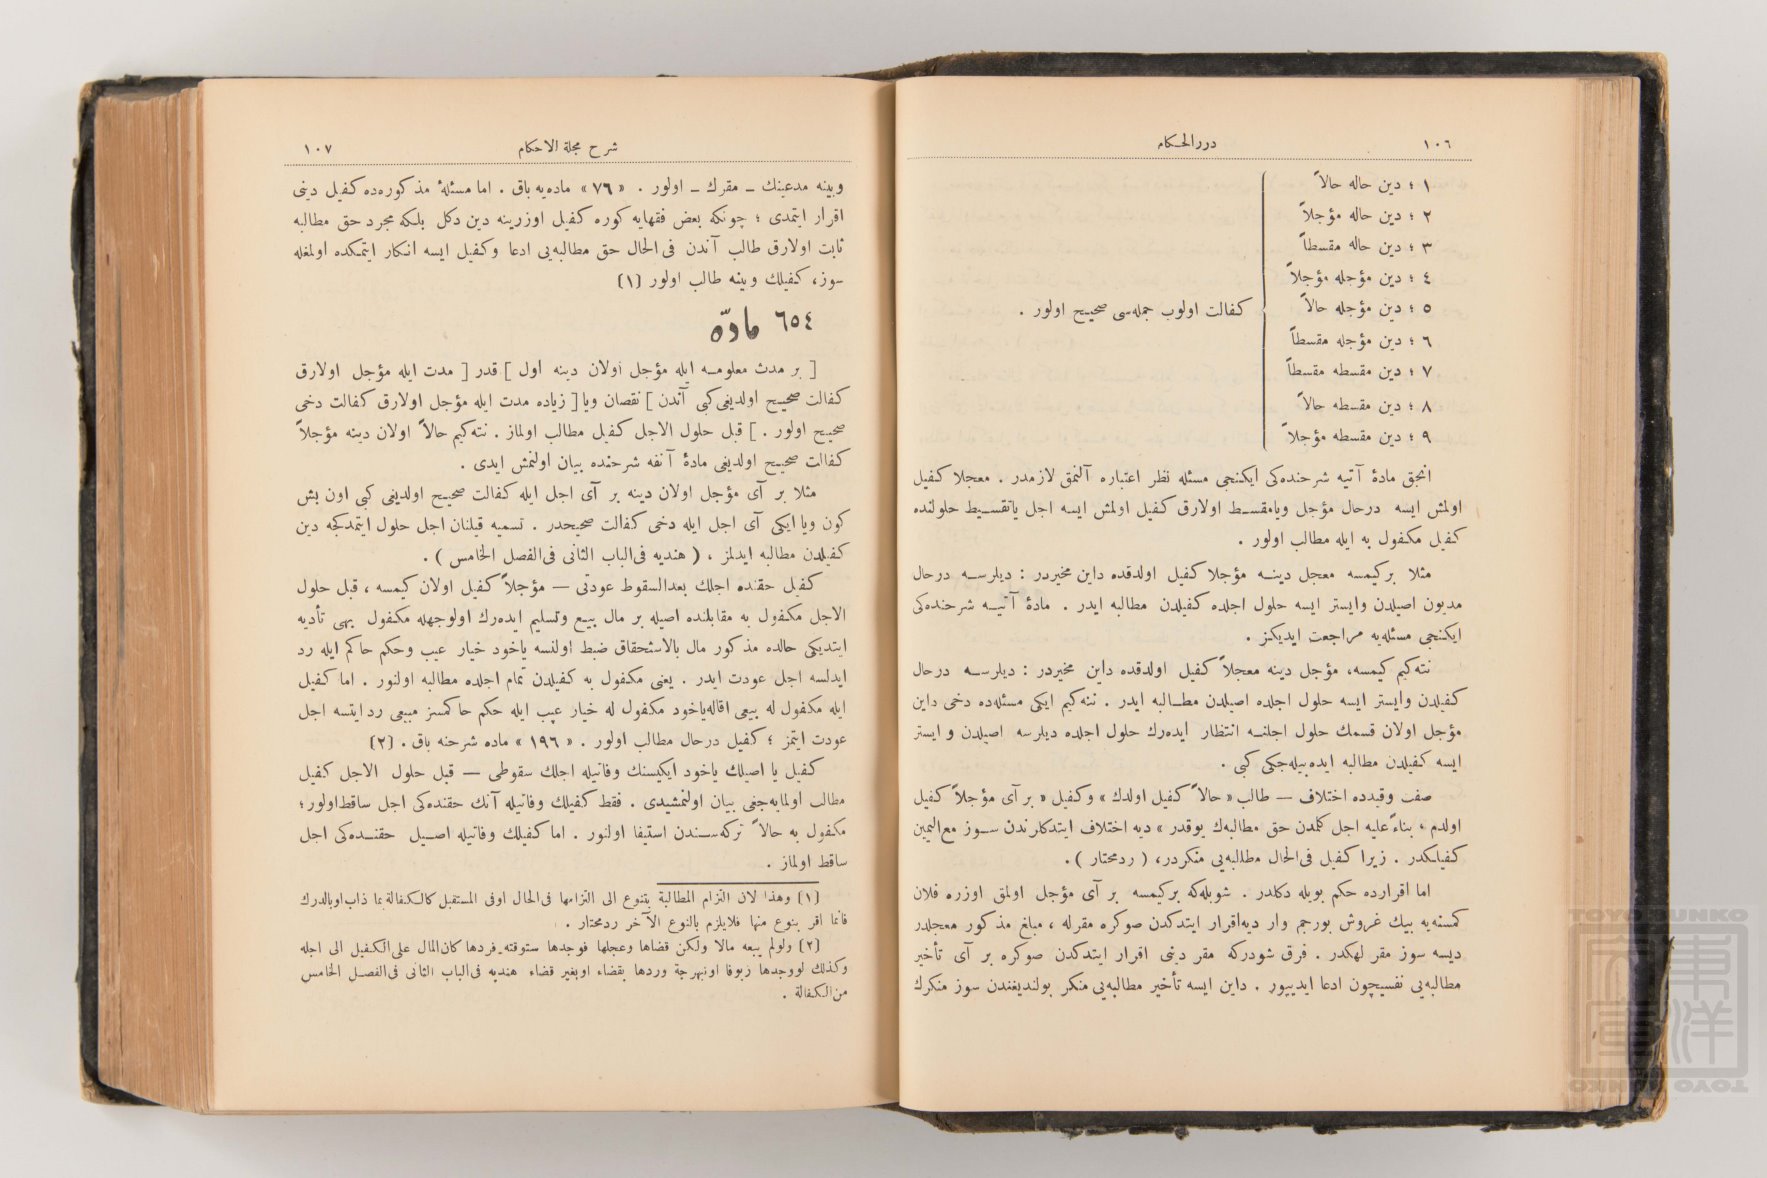 ١٠٦
دررالحكام
١ ؛ دين حاله حالاً
٢ ؛ دين حاله مؤجلاً
٣ ؛ دين حاله مقسطاً
٤ ؛ دين مؤجله مؤجلاً
٥ ؛ دين مؤجله حالاً
كفالت اولوب جمله‌سى صحيح اولور .
٦ ؛ دين مؤجله مقسطاً
٧ ؛ دين مقسطه مقسطاً
٨ ؛ دين مقسطه حالاً
٩ ؛ دين مقسطه مؤجلاً
انجق مادهٔ آتيه شرحنده‌كى ايكنجى مسئله نظر اعتباره آلنمق لازمدر . معجلا كفيل
اولمش ايسه درحال مؤجل ويامقسط اولارق كفيل اولمش ايسه اجل ياتقسيط حلولنده
كفيل مكفول به ايله مطالب اولور .
مثلا بركيمسه معجل دينه مؤجلا كفيل اولدقده داين مخيردر : ديلرسه درحال
مديون اصيلدن وايستر ايسه حلول اجلده كفيلدن مطالبه ايدر . مادهٔ آتيه شرحنده‌كى
ايكنجى مسئله‌يه مراجعت ايديكز .
نته‌كيم كيمسه، مؤجل دينه معجلاً كفيل اولدقده داين مخيردر : ديلرسه درحال
كفيلدن وايستر ايسه حلول اجلده اصيلدن مطالبه ايدر . نته‌كيم ايكى مسئله‌ده دخى داين
مؤجل اولان قسمك حلول اجلنه انتظار ايده‌رك حلول اجلده ديلرسه اصيلدن و ايستر
ايسه كفيلدن مطالبه ايده‌بيله‌جكى كبى .
صفت وقيدده اختلاف — طالب « حالاً كفيل اولدك » وكفيل « بر آى مؤجلاً كفيل
اولدم ، بناءً عليه اجل كلمدن حق مطالبه‌ك يوقدر » ديه اختلاف ايتدكلرندن سوز مع‌اليمين
كفيلكدر . زيرا كفيل فى‌الحال مطالبه‌يى منكردر، ( ردمحتار ) .
اما اقرارده حكم بويله دكلدر . شويله‌كه بركيمسه بر آى مؤجل اولمق اوزره فلان
كمسنه‌يه بيك غروش بورجم وار ديه‌اقرار ايتدكدن صوكره مقرله ، مبلغ مذكور معجلدر
ديسه سوز مقر لهكدر . فرق شودركه مقر دينى اقرار ايتدكدن صوكره بر آى تأخير
مطالبه‌يى نفسيچون ادعا ايدييور . داين ايسه تأخير مطالبه‌يى منكر بولنديغندن سوز منكرك
شرح مجلة الاحكام
١٠٧
وبينه مدعينك – مقرك – اولور . « ٧٦ » ماده‌يه باق . اما مسئلهٔ مذكوره‌ده كفيل دينى
اقرار ايتمدى ؛ چونكه بعض فقهايه كوره كفيل اوزرينه دين دكل بلكه مجرد حق مطالبه
ثابت اولارق طالب آندن فى‌الحال حق مطالبه‌يى ادعا وكفيل ايسه انكار ايتمكده اولمغله
سوز، كفيلك وبينه طالب اولور (١)
٦٥٤ مادّه
[ بر مدت معلومه ايله مؤجل اولان دينه اول ] قدر [ مدت ايله مؤجل اولارق
كفالت صحيح اولديغى‌كبى آندن ] نقصان ويا [ زياده مدت ايله مؤجل اولارق كفالت دخى
صحيح اولور . ] قبل حلول الاجل كفيل مطالب اولماز . نته‌كيم حالاً اولان دينه مؤجلاً
كفالت صحيح اولديغى مادهٔ آنفه شرحنده بيان اولنمش ايدى .
مثلا بر آى مؤجل اولان دينه بر آى اجل ايله كفالت صحيح اولديغى كبى اون بش
كون ويا ايكى آى اجل ايله دخى كفالت صحيحدر . تسميه قيلنان اجل حلول ايتمدكجه دين
كفيلدن مطالبه ايدلمز ، ( هنديه فى‌الباب الثانى فى‌الفصل الخامس ) .
كفيل حقنده اجلك بعدالسقوط عودتى — مؤجلاً كفيل اولان كيمسه ، قبل حلول
الاجل مكفول به مقابلنده اصيله بر مال بيع وتسليم ايده‌رك اولوجهله مكفول بهى تأديه
ايتديكى حالده مذكور مال بالاستحقاق ضبط اولنسه ياخود خيار عيب وحكم حاكم ايله رد
ايدلسه اجل عودت ايدر . يعنى مكفول به كفيلدن تمام اجلده مطالبه اولنور . اما كفيل
ايله مكفول له بيعى اقاله‌ياخود مكفول له خيار عيب ايله حكم حاكمسز مبيعى رد ايتسه اجل
عودت ايتمز ؛ كفيل درحال مطالب اولور . « ١٩٦ » ماده شرحنه باق . (٢)
كفيل يا اصيلك ياخود ايكيسنك وفاتيله اجلك سقوطى — قبل حلول الاجل كفيل
مطالب اولمايه‌جغى بيان اولنمشيدى . فقط كفيلك وفاتيله آنك حقنده‌كى اجل ساقط‌اولور ؛
مكفول به حالاً تركه‌سندن استيفا اولنور . اما كفيلك وفاتيله اصيل حقنده‌كى اجل
ساقط اولماز .
(١) وهذا لان التزام المطالبة يتنوع الى التزامها فى‌الحال اوفى المستقبل كالكفالة بما ذاب‌اوبالدرك
فانما اقر بنوع منها فلايلزم بالنوع الآخر ردمحتار .
(٢) ولولم يبعه مالا ولكن قضاها وعجلها فوجدها ستوقة‌فردها كان‌المال على‌الكفيل الى اجله
وكذلك لووجدها زيوفا اونبهرجة وردها بقضاء اوبغير قضاء هنديه فى‌الباب الثانى فى‌الفصل الخامس
من‌الكفالة .
TOYO BUNKO
東洋文庫
TOYO BUNKO